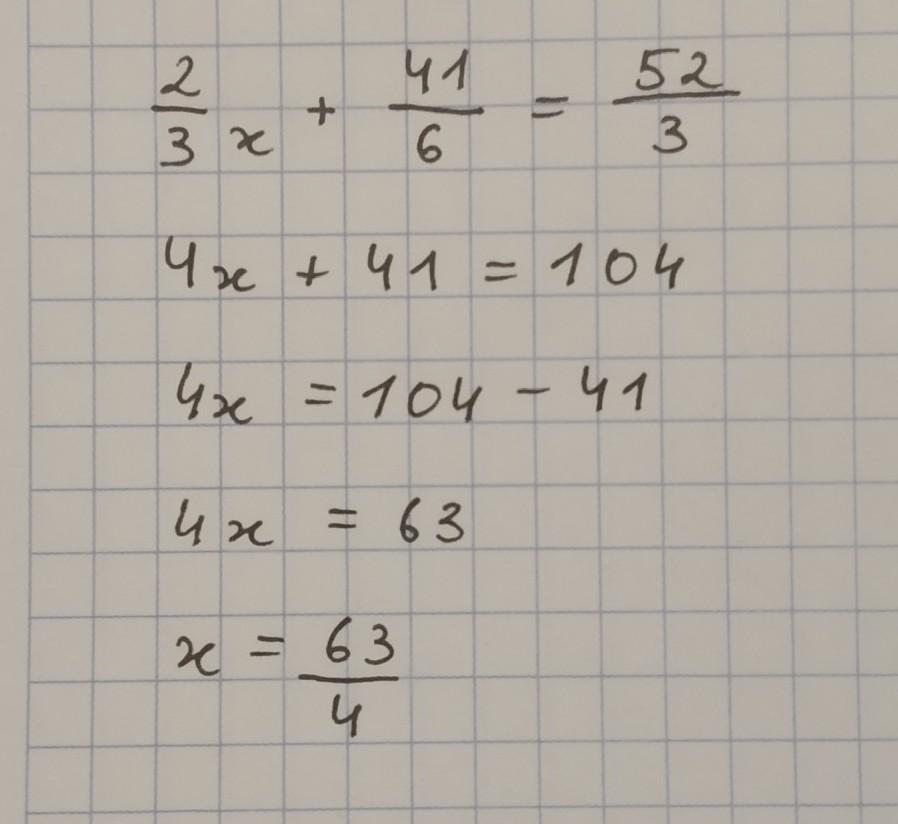 2/3 x + 41/6 = 52/3
4x + 41 = 104
4x = 104 - 41
4x = 63
x = 63/4